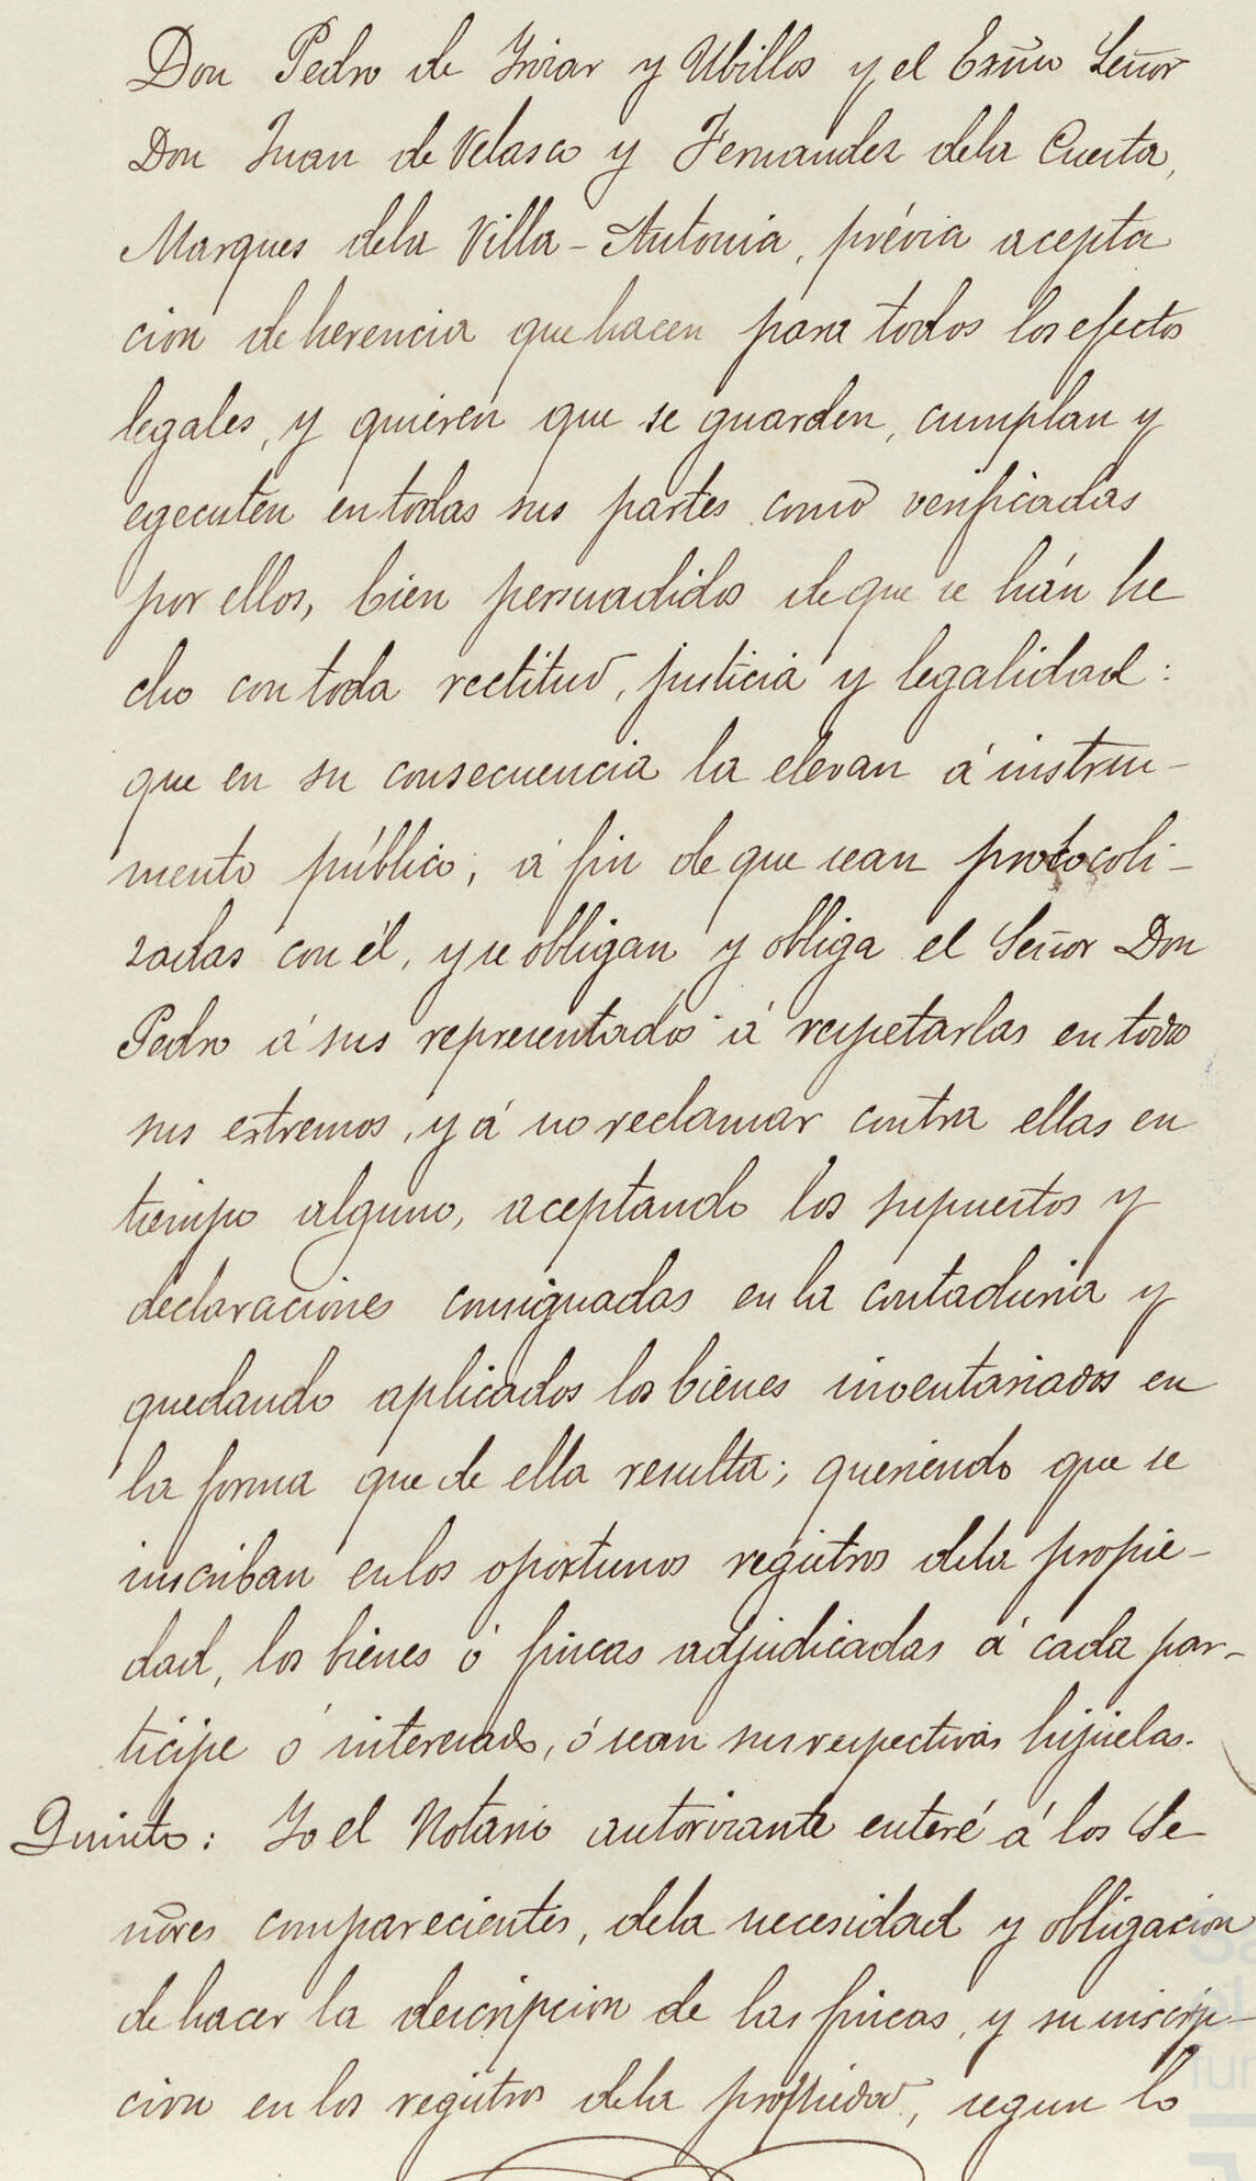 Don Pedro de Yrizar y Ubillos y el Exmo Señor
Don Juan de Velasco y Fernandez dela Cuesta,
Marques dela Villa-Antonia, prévia acepta
cion de herencia que hacen para todos los efectos
legales, y quieren que se guarden, cumplan y
egecuten en todas sus partes como verificadas
por ellos, bien persuadidos de que se hán he
cho con toda rectitud, justicia y legalidad:
que en su consecuencia la elevan á instru-
mento público, á fin de que sean protocoli-
zadas con él, y se obligan y obliga el Señor Don
Pedro á sus representados á respetarlas en todos
sus estremos, y á no reclamar contra ellas en
tiempo alguno, aceptando los supuestos y
declaraciones consignadas en la contaduria y
quedando aplicados los bienes inventariados en
la forma que de ella resulta; queriendo que se
inscriban en los oportunos registros dela propie-
dad, los bienes ó fincas adjudicadas á cada par-
ticipe ó interesado, ó sean sus respectivas hijuelas.
Quinto: Yo el Notario autorizante enteré á los Se
ñores comparecientes, dela necesidad y obligacion
de hacer la descripcion de las fincas, y su inscrip-
cion en los registros dela propiedad, segun lo